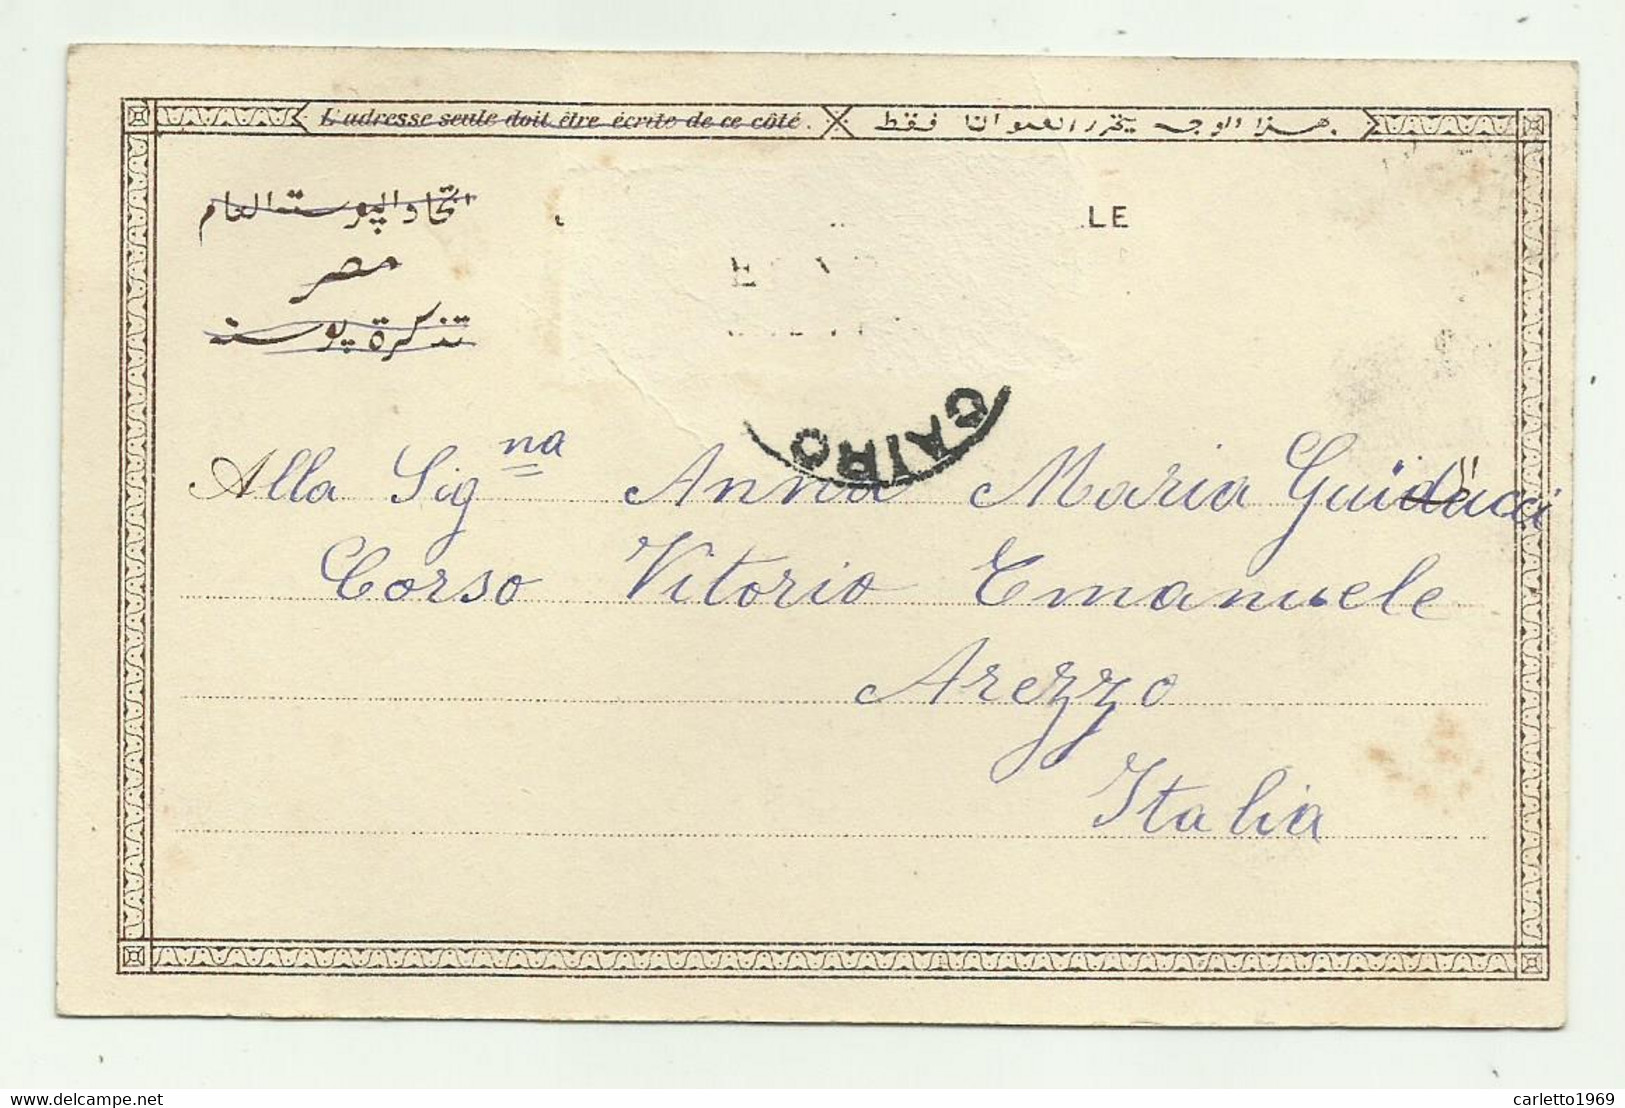 L'adresse seule doit être écrite de ce côté.
هذا الوجه يتحرر العنوان فقط
اتحاد البوسته العام
LE
مصر
تذكرة بوسته
CAIRO
Alla Sig.na Anna Maria Guiducci
Corso Vitorio Emanuele
Arezzo
Italia
delcampe.net
carletto1969